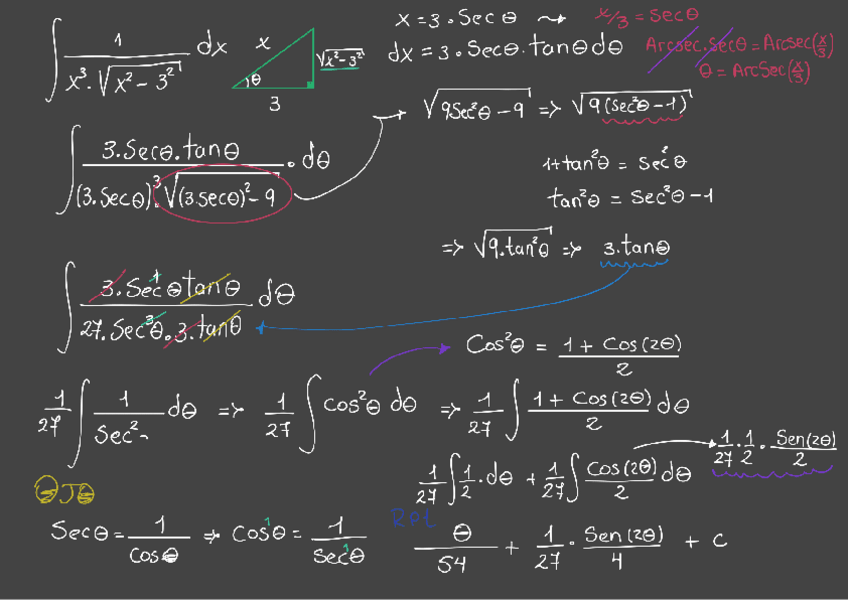 ∫ 1 / (x³ · √(x² – 3²)) dx
x
√(x² – 3²)
θ
3
x = 3 · Sec θ ⤳ x/3 = secθ
dx = 3 · Secθ · tanθ dθ
Arcsec · secθ = Arcsec(x/3)
θ = ArcSec(x/3)
∫ 3.Secθ.tanθ / ((3.Secθ)³ · √((3.secθ)² – 9)) · dθ
√(9Sec²θ – 9) => √(9(Sec²θ – 1))
1+tan²θ = Sec²θ
tan²θ = Sec²θ – 1
=> √(9.tan²θ) => 3.tanθ
∫ 3.Sec¹θ tanθ / (27.Sec³θ . 3.tanθ) dθ
Cos²θ = (1 + Cos(2θ)) / 2
1/27 ∫ 1 / Sec² dθ => 1/27 ∫ cos²θ dθ => 1/27 ∫ (1 + Cos(2θ)) / 2 dθ
1/27 ∫ 1/2 · dθ + 1/27 ∫ Cos(2θ) / 2 dθ
1/27 · 1/2 · Sen(2θ) / 2
OJO
Secθ = 1 / cosθ => Cos¹θ = 1 / Sec¹θ
θ / 54 + 1/27 · Sen(2θ) / 4 + C